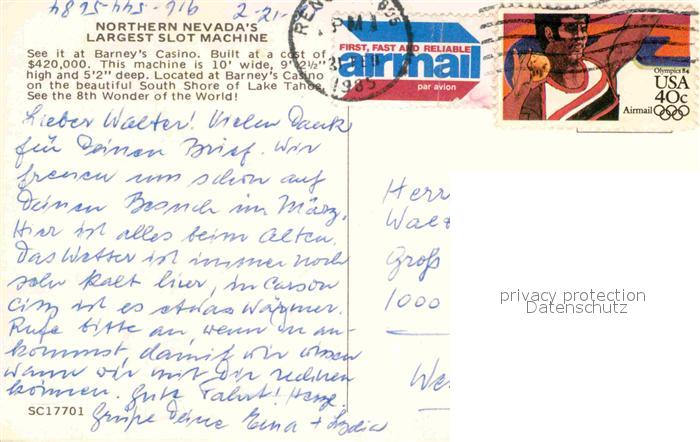 916-544-5874 2-21-
NORTHERN NEVADA'S
LARGEST SLOT MACHINE
See it at Barney's Casino. Built at a cost of
$420,000. This machine is 10' wide, 9' 2½"
high and 5'2" deep. Located at Barney's Casino
on the beautiful South Shore of Lake Tahoe
See the 8th Wonder of the World!
RENO
PM
1985
FIRST, FAST AND RELIABLE
airmail
par avion
Olympics 84
USA
40c
Airmail
Lieber Walter! Vielen Dank
für Deinen Brief. Wir
freuen uns schon auf
Deinen Besuch im März.
Hier ist alles beim Alten.
Das Wetter ist immer noch
sehr kalt hier, in Carson
City ist es etwas wärmer.
Rufe bitte an wenn Du an-
kommst, damit wir wissen
wann wir mit Dir rechnen
können. Gute Fahrt! Herzl.
Grüße Deine + Lydia
SC17701
Herr
Walt
Groß
1000
We
privacy protection
Datenschutz